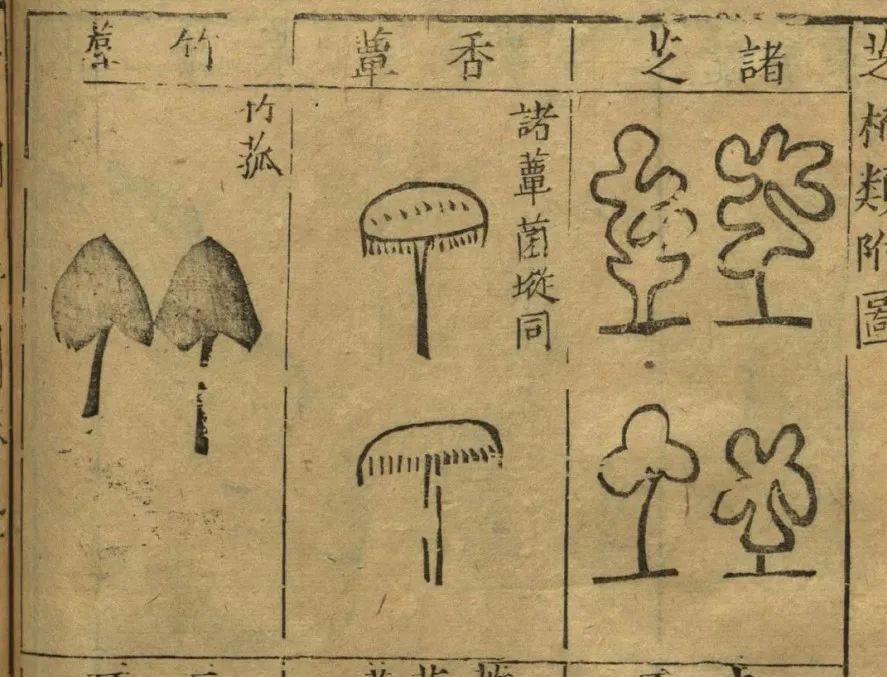 芝
類附圖
諸芝
香蕈
諸蕈菌㙡同
竹
竹菰